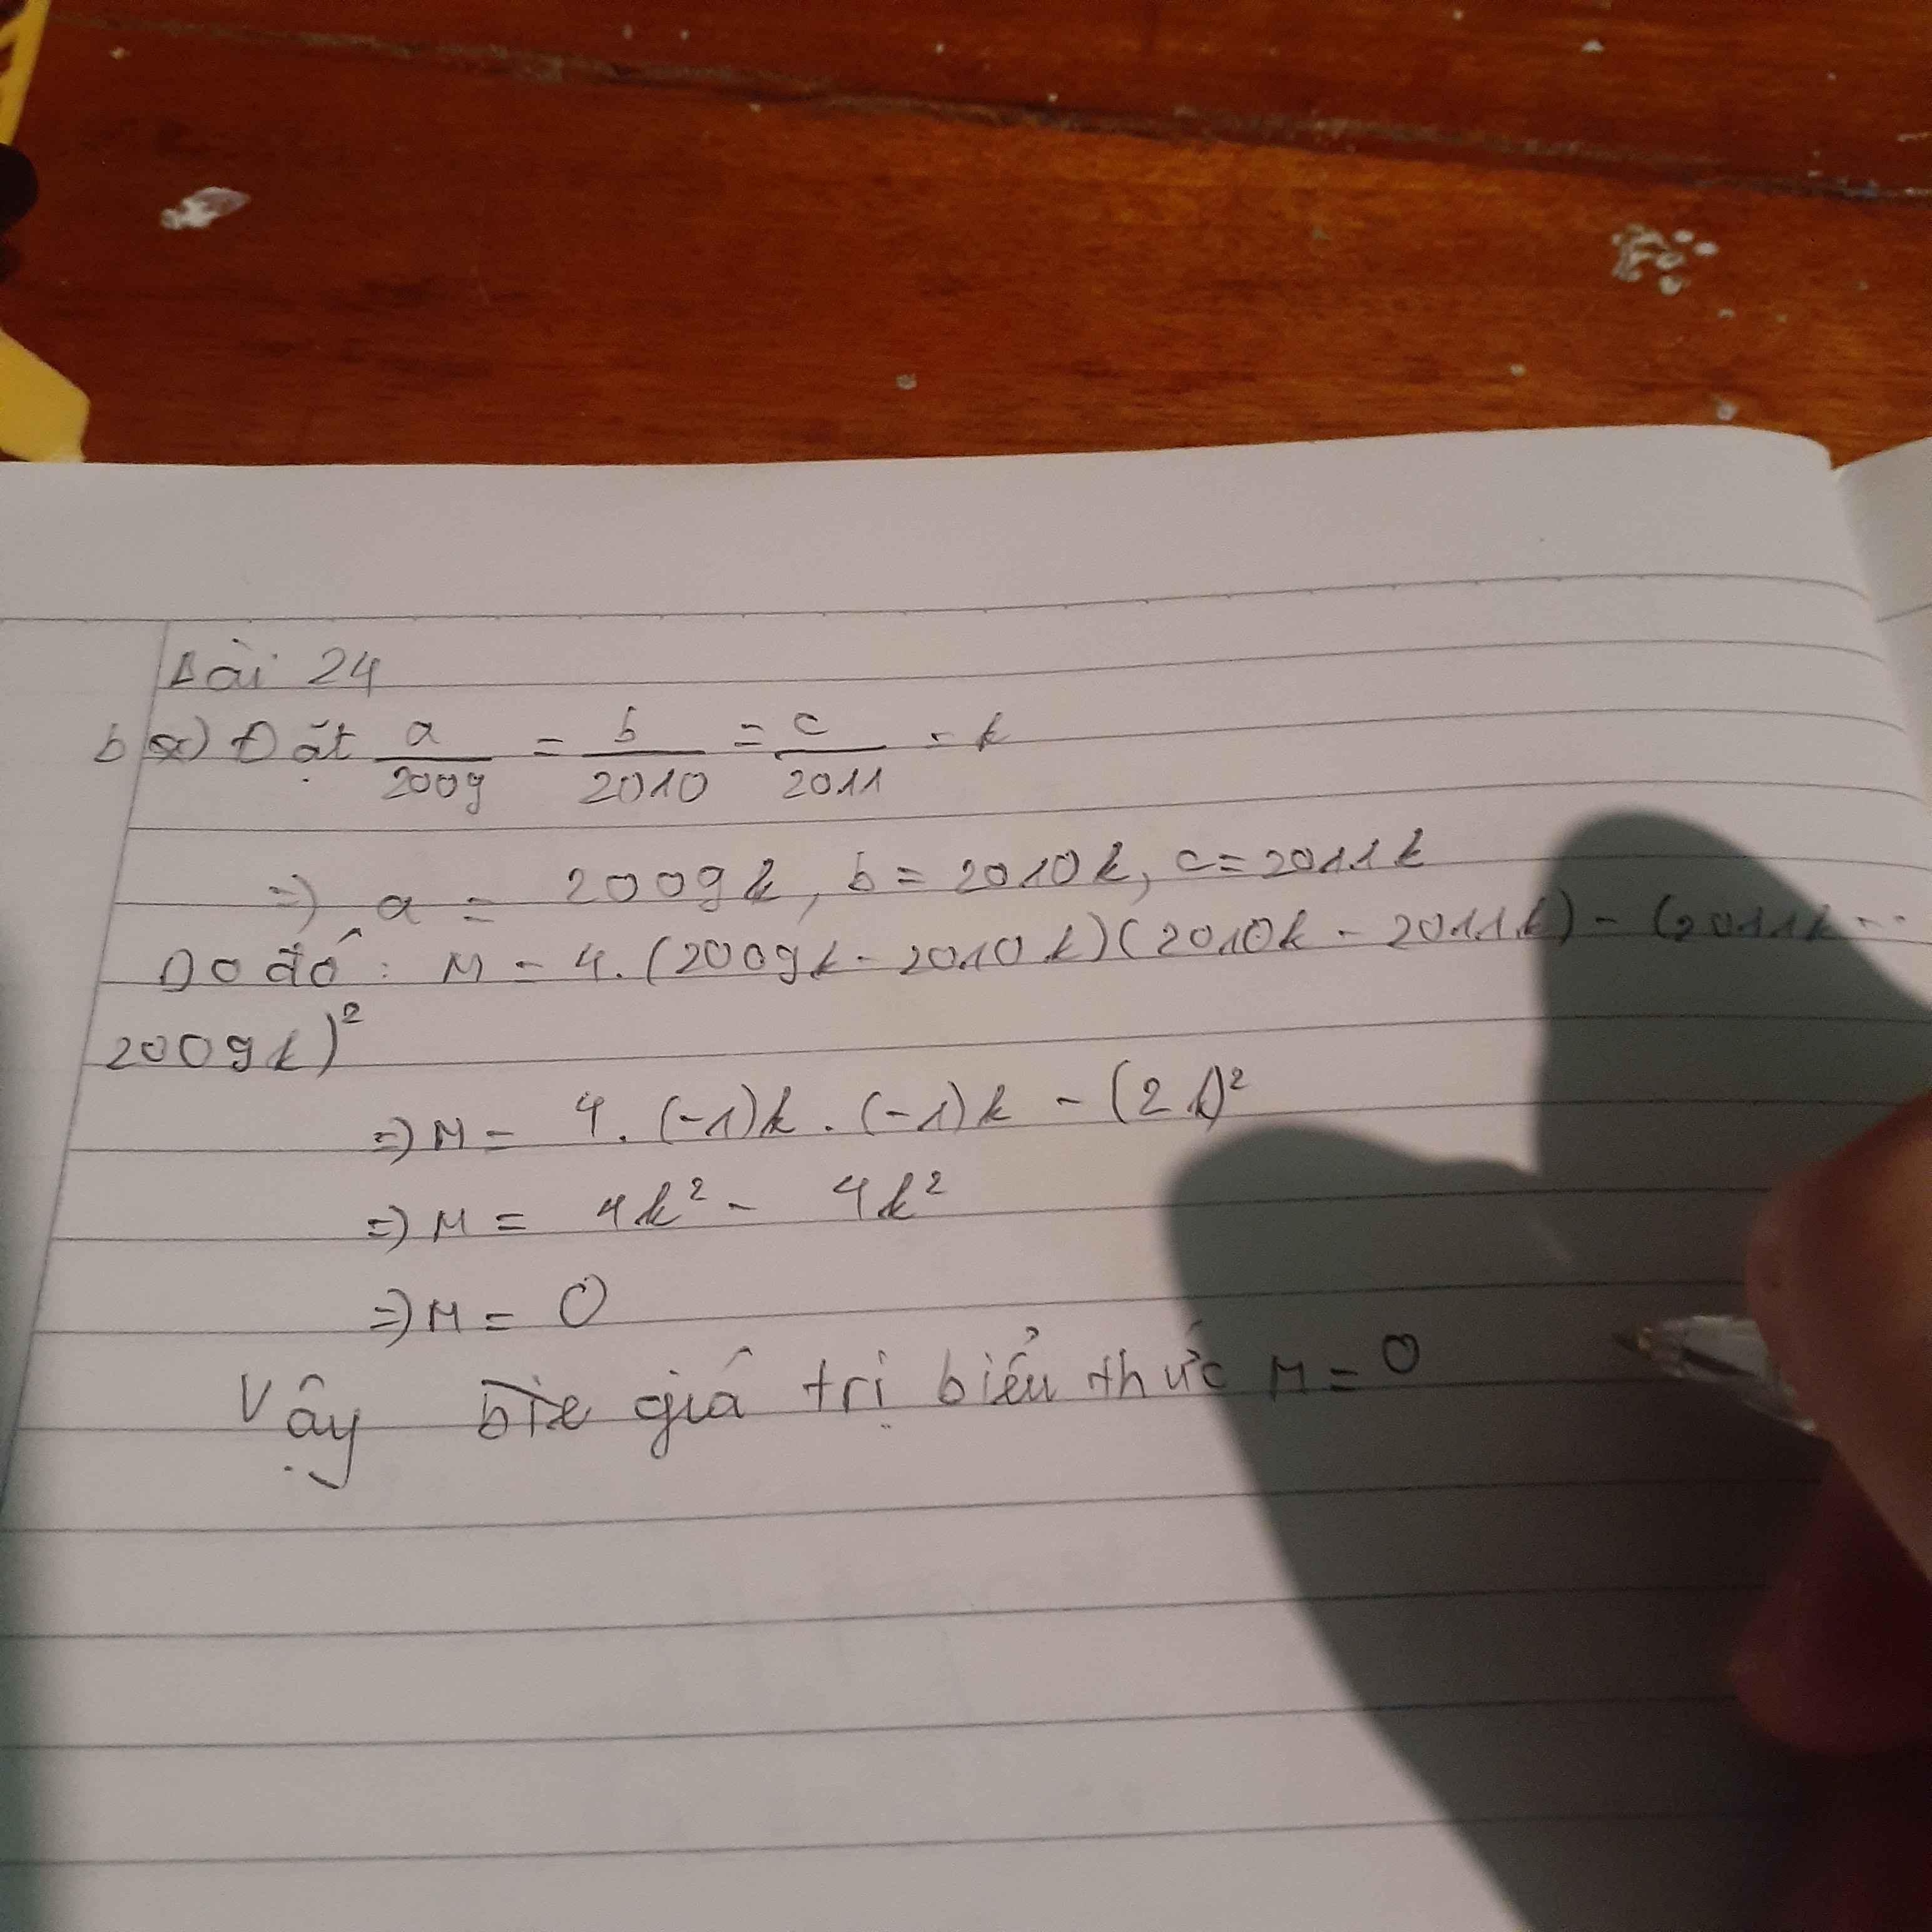 Bài 24
b) Đặt a/2009 = b/2010 = c/2011 = k
=) a = 2009k, b = 2010k, c = 2011k
Do đó: M = 4.(2009k - 2010k)(2010k - 2011k) - (2011k -
2009k)²
=) M = 4.(-1)k.(-1)k - (2k)²
=) M = 4k² - 4k²
=) M = 0
Vậy giá trị biểu thức M = 0